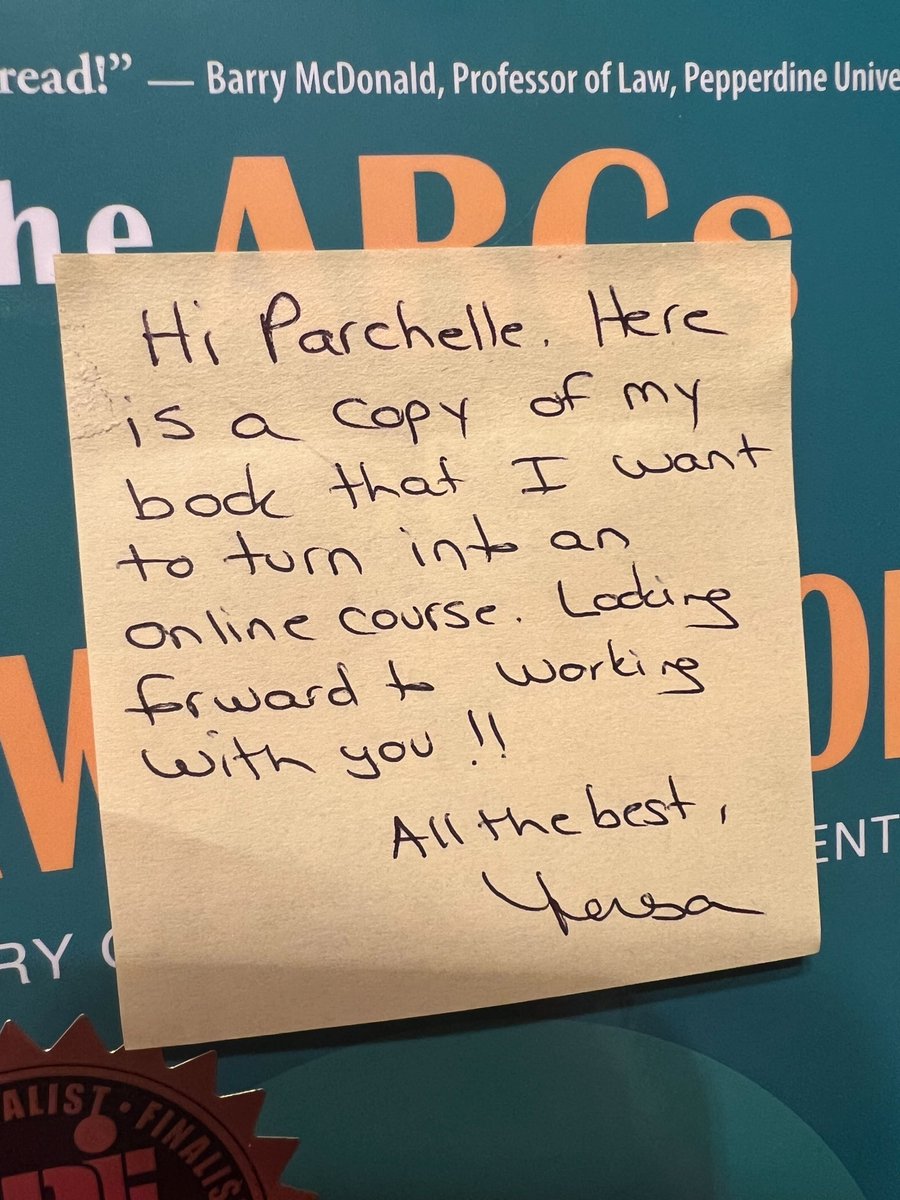 read!” — Barry McDonald, Professor of Law, Pepperdine Unive
he ABCs
Hi Parchelle. Here
is a copy of my
book that I want
to turn into an
online course. Looking
forward to working
with you !!
All the best,
W
ENT
RY
ALIST · FINALIS